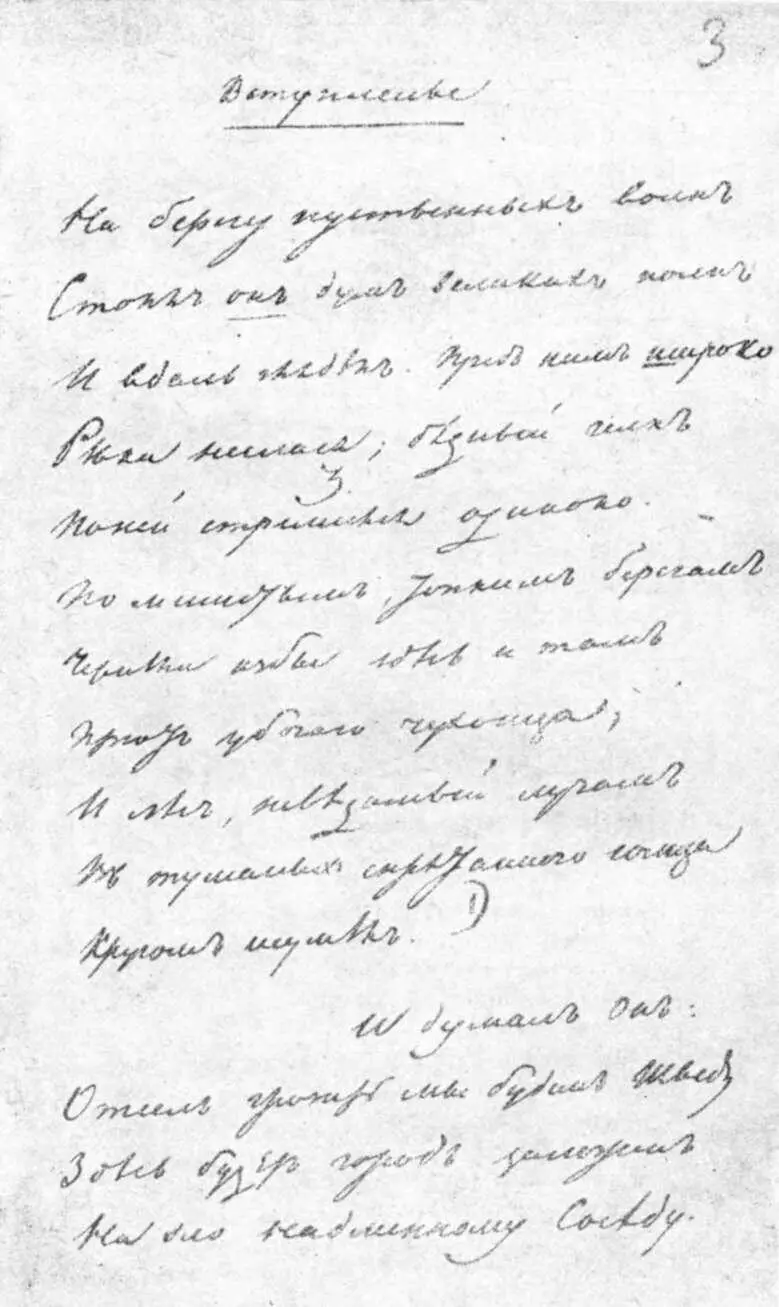 3
Вступленье
На берегу пустынныхъ волнъ
Стоялъ онъ думъ великихъ полнъ
И вдаль глядѣлъ. Предъ нимъ широко
Рѣка неслася; бѣдный челнъ
По ней стремился одиноко.
По мшистымъ, топкимъ берегамъ
Чернѣли избы здѣсь и тамъ
Пріютъ убогаго чухонца;
И лѣсъ, невѣдомый лучамъ
Въ туманѣ спрятаннаго солнца
Кругомъ шумѣлъ. 1)
И думалъ онъ:
Отсель грозить мы будемъ Шведу
Здѣсь будетъ городъ заложенъ
На зло надменному Сосѣду.